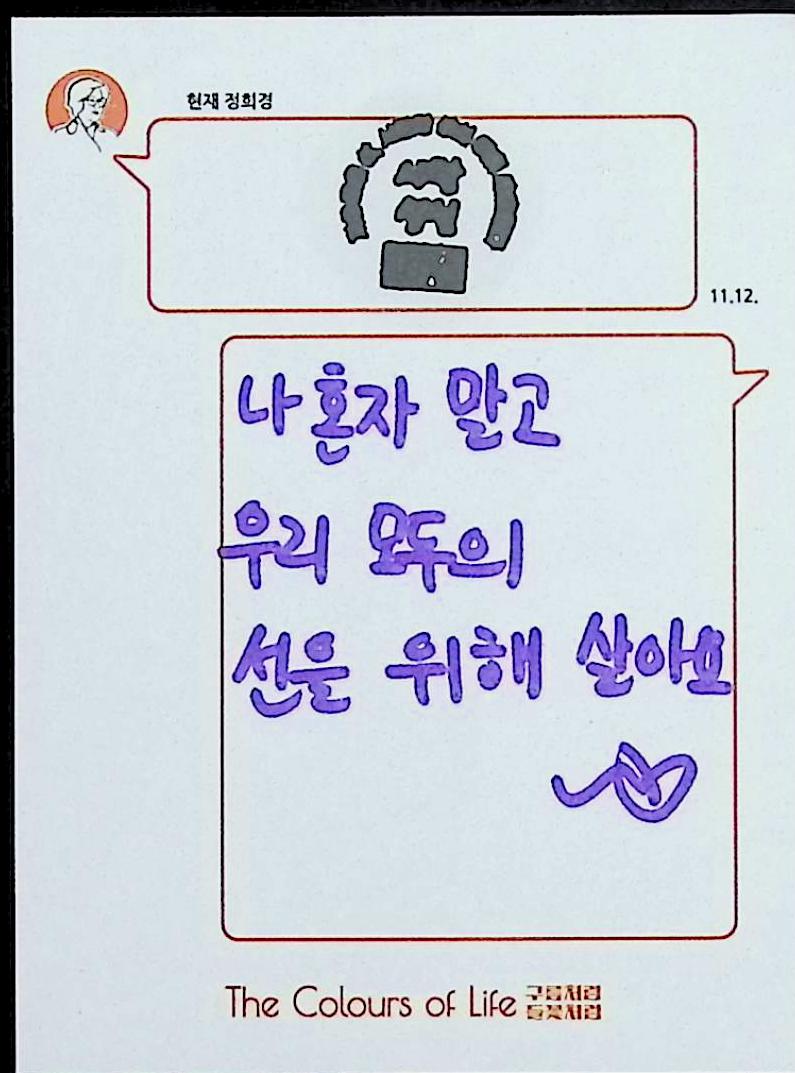 현재 정희경
11.12.
나 혼자 말고
우리 모두의
선을 위해 살아요
The Colours of Life 구름처럼
들꽃처럼